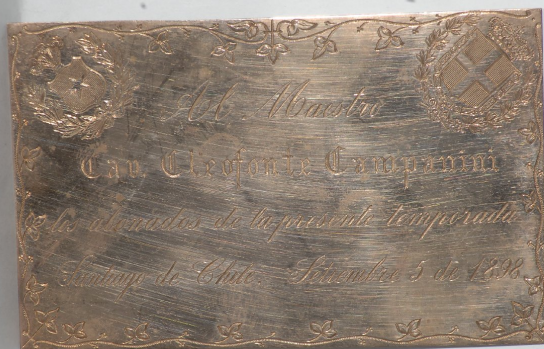 Al Maestro
Cav. Cleofonte Campanini
Los abonados de la presente temporada
Santiago de Chile. Setiembre 5 de 1898